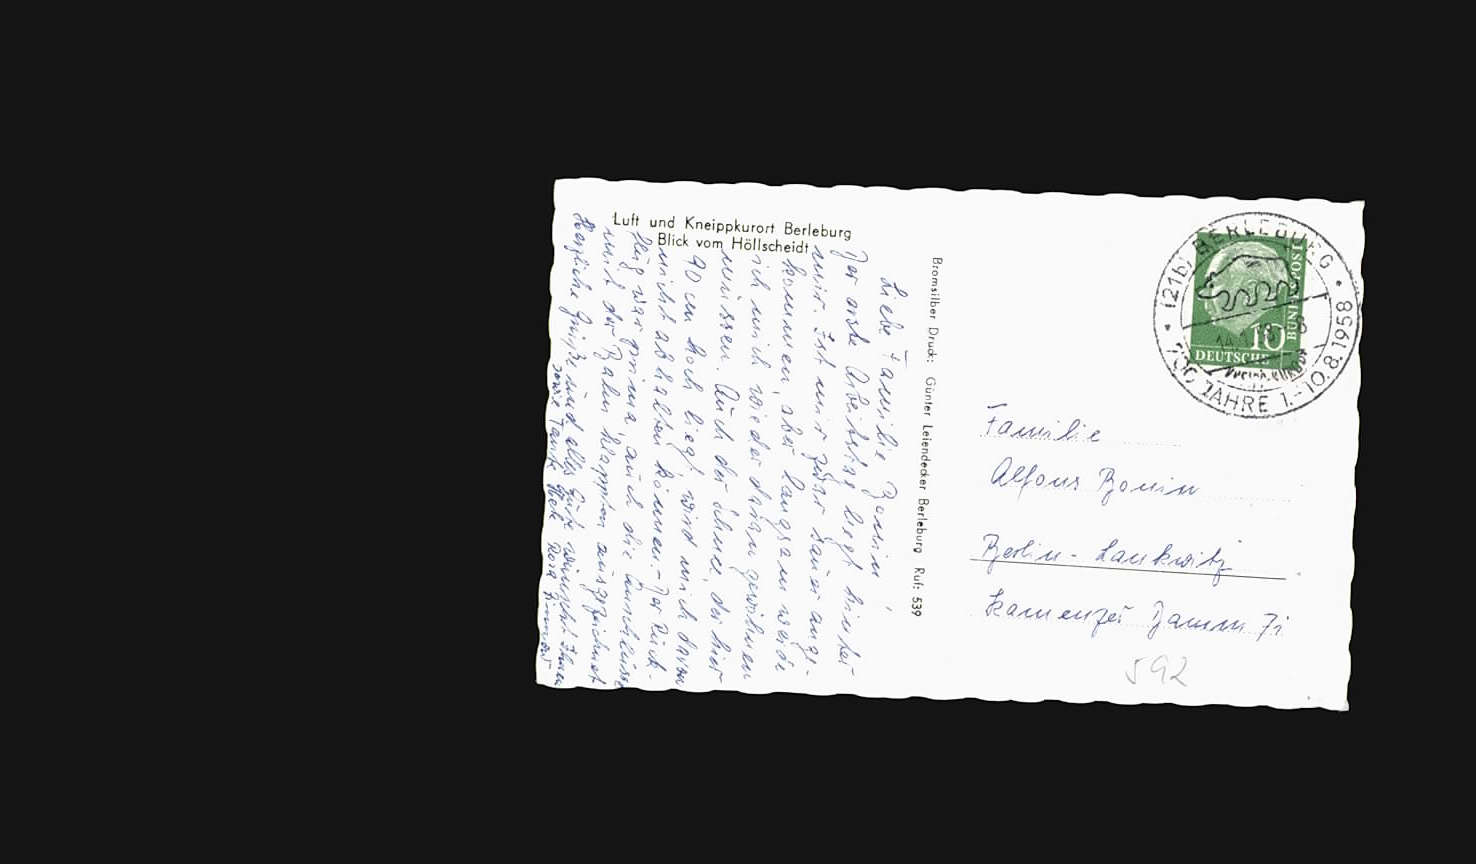 Luft und Kneippkurort Berleburg
Blick vom Höllscheidt
Liebe Familie Bonin,
Der erste Arbeitstag liegt hinter
mir. Ist mir zwar sauer ange-
kommen, aber langsam werde
ich mich wieder daran gewöhnen
müssen. Auch der Schnee, der hier
90 cm hoch liegt, wird mich davon
nicht abhalten können. - Der Rück-
flug war prima, auch die Anschlüsse
mit der Bahn klappten ausgezeichnet
Herzliche Grüße und alles Gute wünscht Ihnen
sowie Tante
Bromsilber Druck: Günter Leiendecker Berleburg Ruf: 539
(21b) BERLEBURG
700 JAHRE 1.-10.8.1958
10
DEUTSCHE
BUNDESPOST
Familie
Alfons Bonin
Berlin - Lankwitz
Kamenzer Damm 71
592